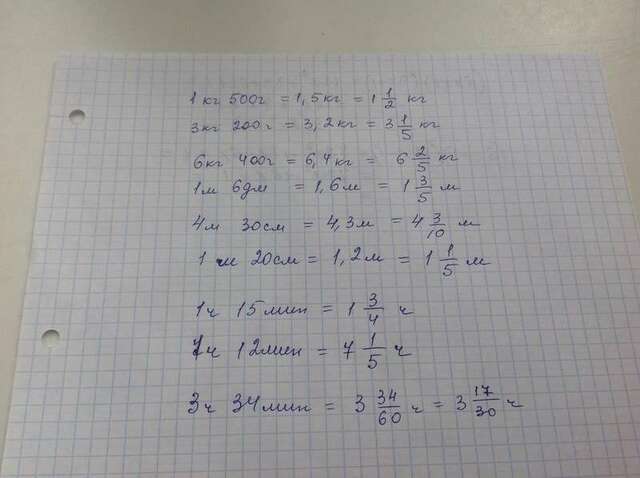 1 кг 500г = 1,5 кг = 1 1/2 кг
3кг 200г = 3,2 кг = 3 1/5 кг
6кг 400г = 6,4 кг = 6 2/5 кг
1м 6дм = 1,6 м = 1 3/5 м
4м 30см = 4,3м = 4 3/10 м
1 м 20см = 1,2м = 1 1/5 м
1ч 15мин = 1 3/4 ч
7ч 12мин = 7 1/5 ч
3ч 34мин = 3 34/60 ч = 3 17/30 ч